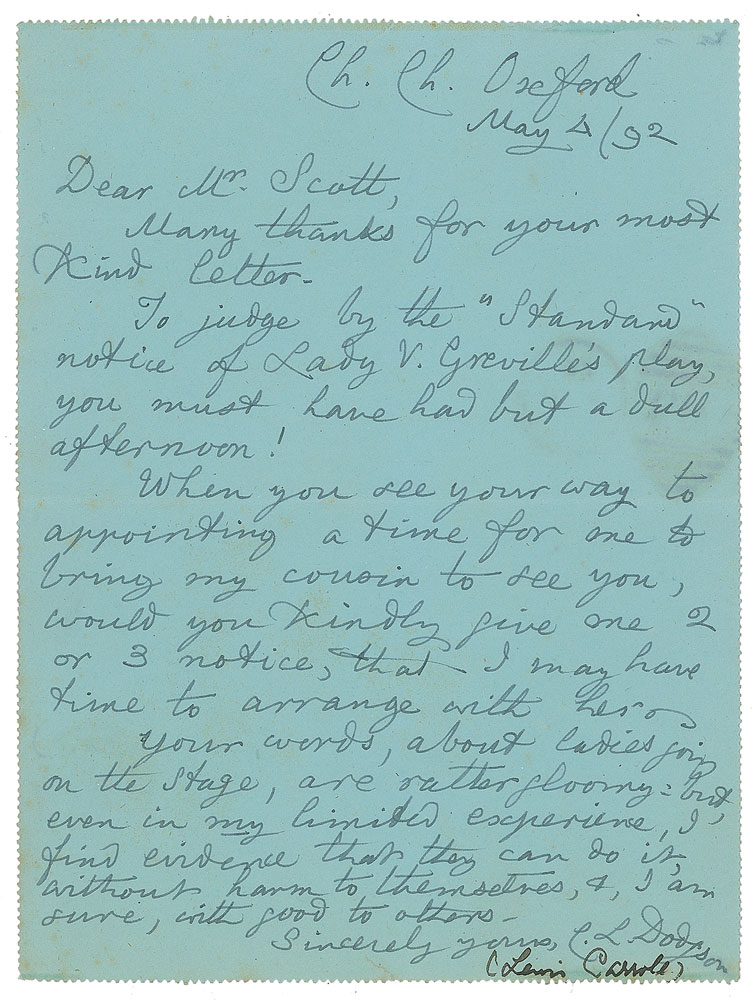 Ch. Ch. Oxford
May 4/92
Dear Mr. Scott,
Many thanks for your most
kind letter.
To judge by the "Standard"
notice of Lady V. Greville's play,
you must have had but a dull
afternoon!
When you see your way to
appointing a time for me to
bring my cousin to see you,
would you kindly give me 2
or 3 notice, that I may have
time to arrange with her.
Your words, about ladies going
on the stage, are rather gloomy: but,
even in my limited experience, I
find evidence that they can do it,
without harm to themselves, &, I am
sure, with good to others.
Sincerely yours, C. L. Dodgson
(Lewis Carroll)